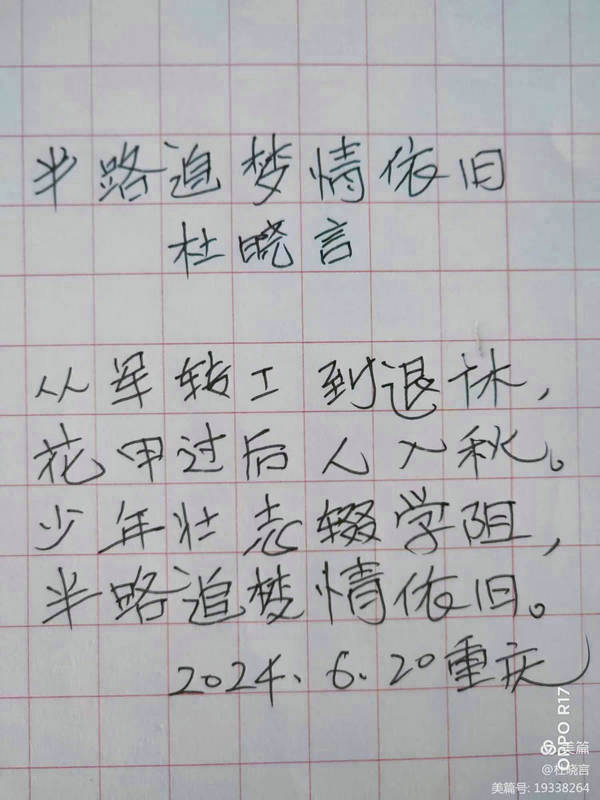 半路追梦情依旧
杜晓言
从军转工到退休，
花甲过后人入秋。
少年壮志辍学阻，
半路追梦情依旧。
2024.6.20重庆
OPPO R17
美篇
@杜晓言
美篇号: 19338264